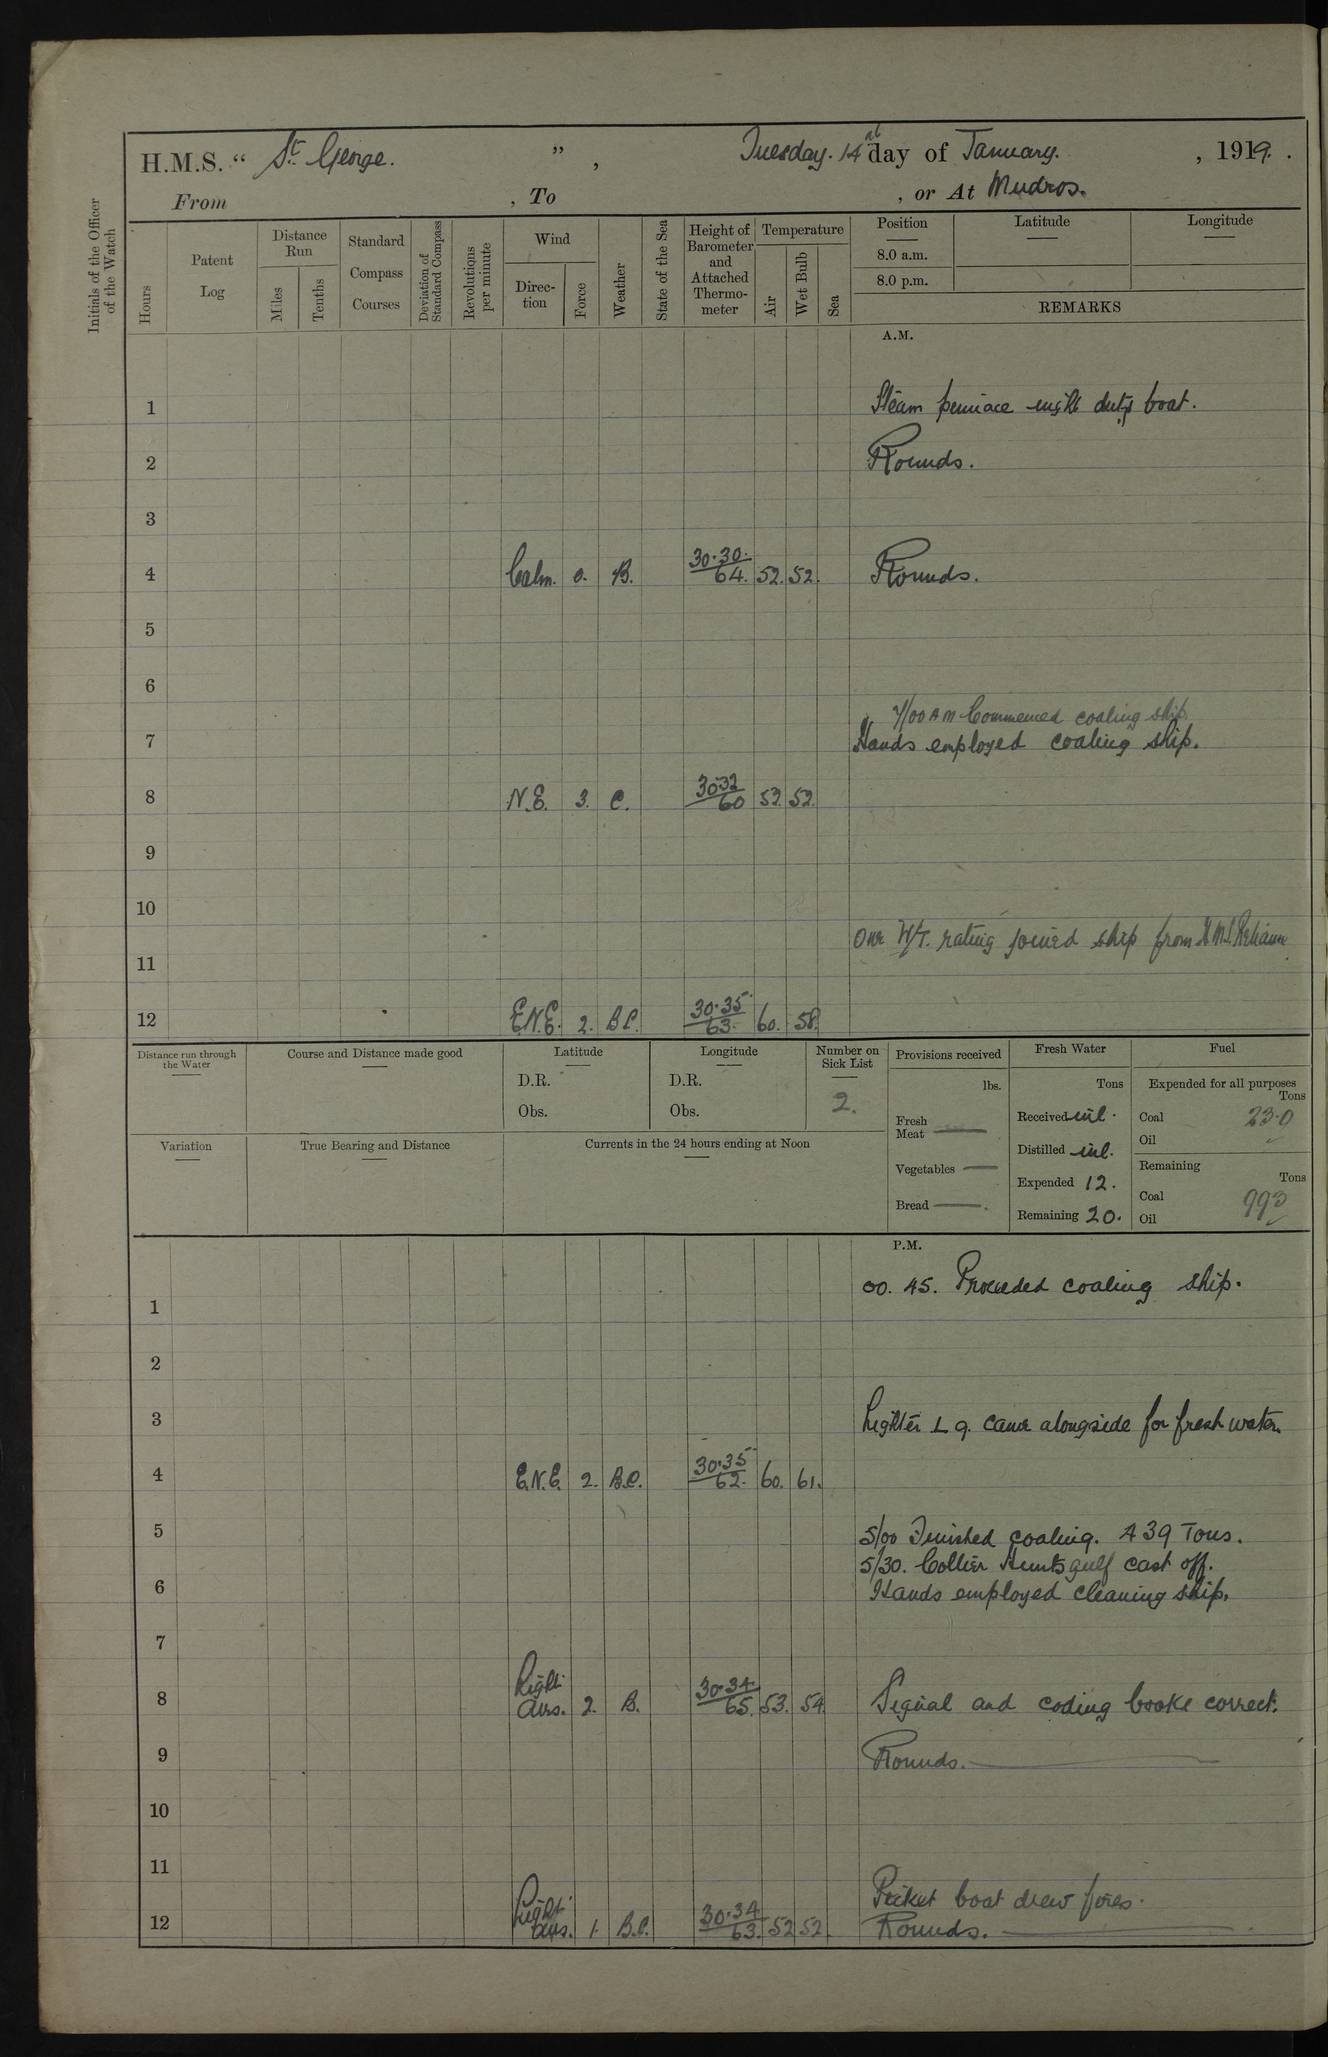 H.M.S. “ St. George. ” , Tuesday. 14th day of January. , 1919. .
From , To , or At Mudros.
Initials of the Officer of the Watch
Hours
Patent Log
Distance Run
Miles
Tenths
Standard Compass Courses
Deviation of Standard Compass
Revolutions per minute
Wind
Direc-tion
Force
Weather
State of the Sea
Height of Barometer and Attached Thermo-meter
Temperature
Air
Wet Bulb
Sea
Position Latitude Longitude
8.0 a.m.
8.0 p.m.
REMARKS
A.M.
1 Steam pinnace night duty boat.
2 Rounds.
3
4 Calm. 0. B. 30.30. 64. 52. 52. Rounds.
5
6
7/00 AM Commenced coaling ship.
7 Hands employed coaling ship.
8 N.E. 3. C. 30.32 60 52. 52.
9
10
One W/T. rating joined ship from H.M.S. Reliance
11
12 E.N.E. 2. B.C. 30.35 63. 60. 58.
Distance run through the Water
Course and Distance made good
Latitude
D.R.
Obs.
Longitude
D.R.
Obs.
Number on Sick List
2.
Provisions received
lbs.
Fresh Meat —
Vegetables —
Bread —
Fresh Water
Tons
Received nil.
Distilled nil.
Expended 12.
Remaining 20.
Fuel
Expended for all purposes
Tons
Coal 23.0
Oil
Remaining
Tons
Coal 993
Oil
Variation
True Bearing and Distance
Currents in the 24 hours ending at Noon
P.M.
00.45. Proceeded coaling ship.
1
2
3 Lighter L 9. came alongside for fresh water.
4 E.N.E. 2. B.C. 30.35 62. 60. 61.
5 5/00 Finished coaling. 439 Tons.
5/30. Collier Huntsgulf cast off.
6 Hands employed cleaning ship.
7
8 Light airs. 2. B. 30.34. 65. 53. 54. Signal and coding books correct.
9 Rounds.
10
11
Picket boat drew fires.
12 Light airs. 1. B.C. 30.34 63. 52 52. Rounds.